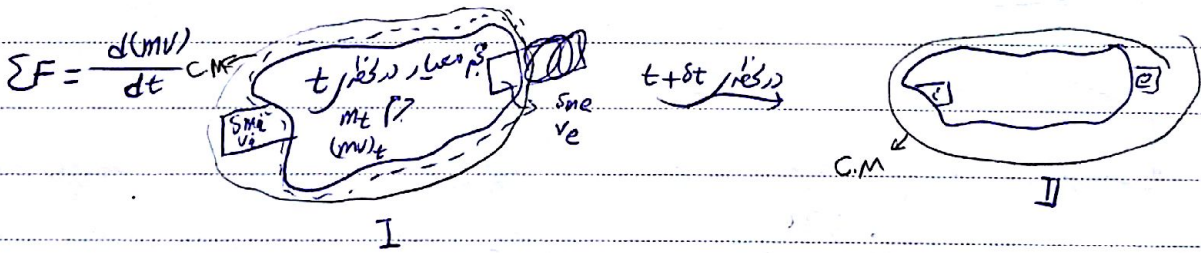 ΣF = d(mv)/dt
C.M
حجم معیار در لحظه t
m_t
(mv)_t
δmi
vi
δme
ve
در لحظه t+δt
i
e
C.M
I
II